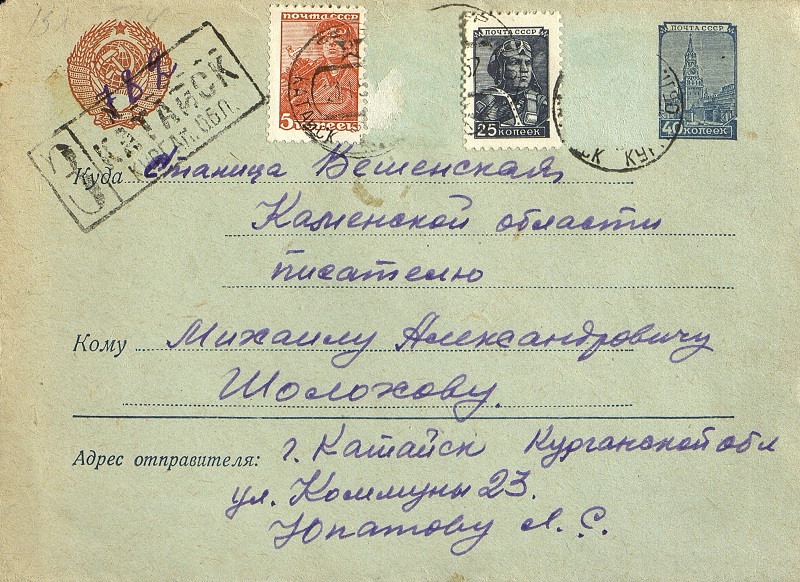 ПОЧТА СССР
5 КОПЕЕК
ПОЧТА СССР
25 КОПЕЕК
ПОЧТА СССР
40 КОПЕЕК
З КАТАЙСК
КУРГАН. ОБЛ.
787
Куда Станица Вешенская,
Каменской области
писателю
Кому Михаилу Александровичу
Шолохову.
Адрес отправителя: г. Катайск Курганской обл
ул. Коммуны 23.
Юпатову Л. С.